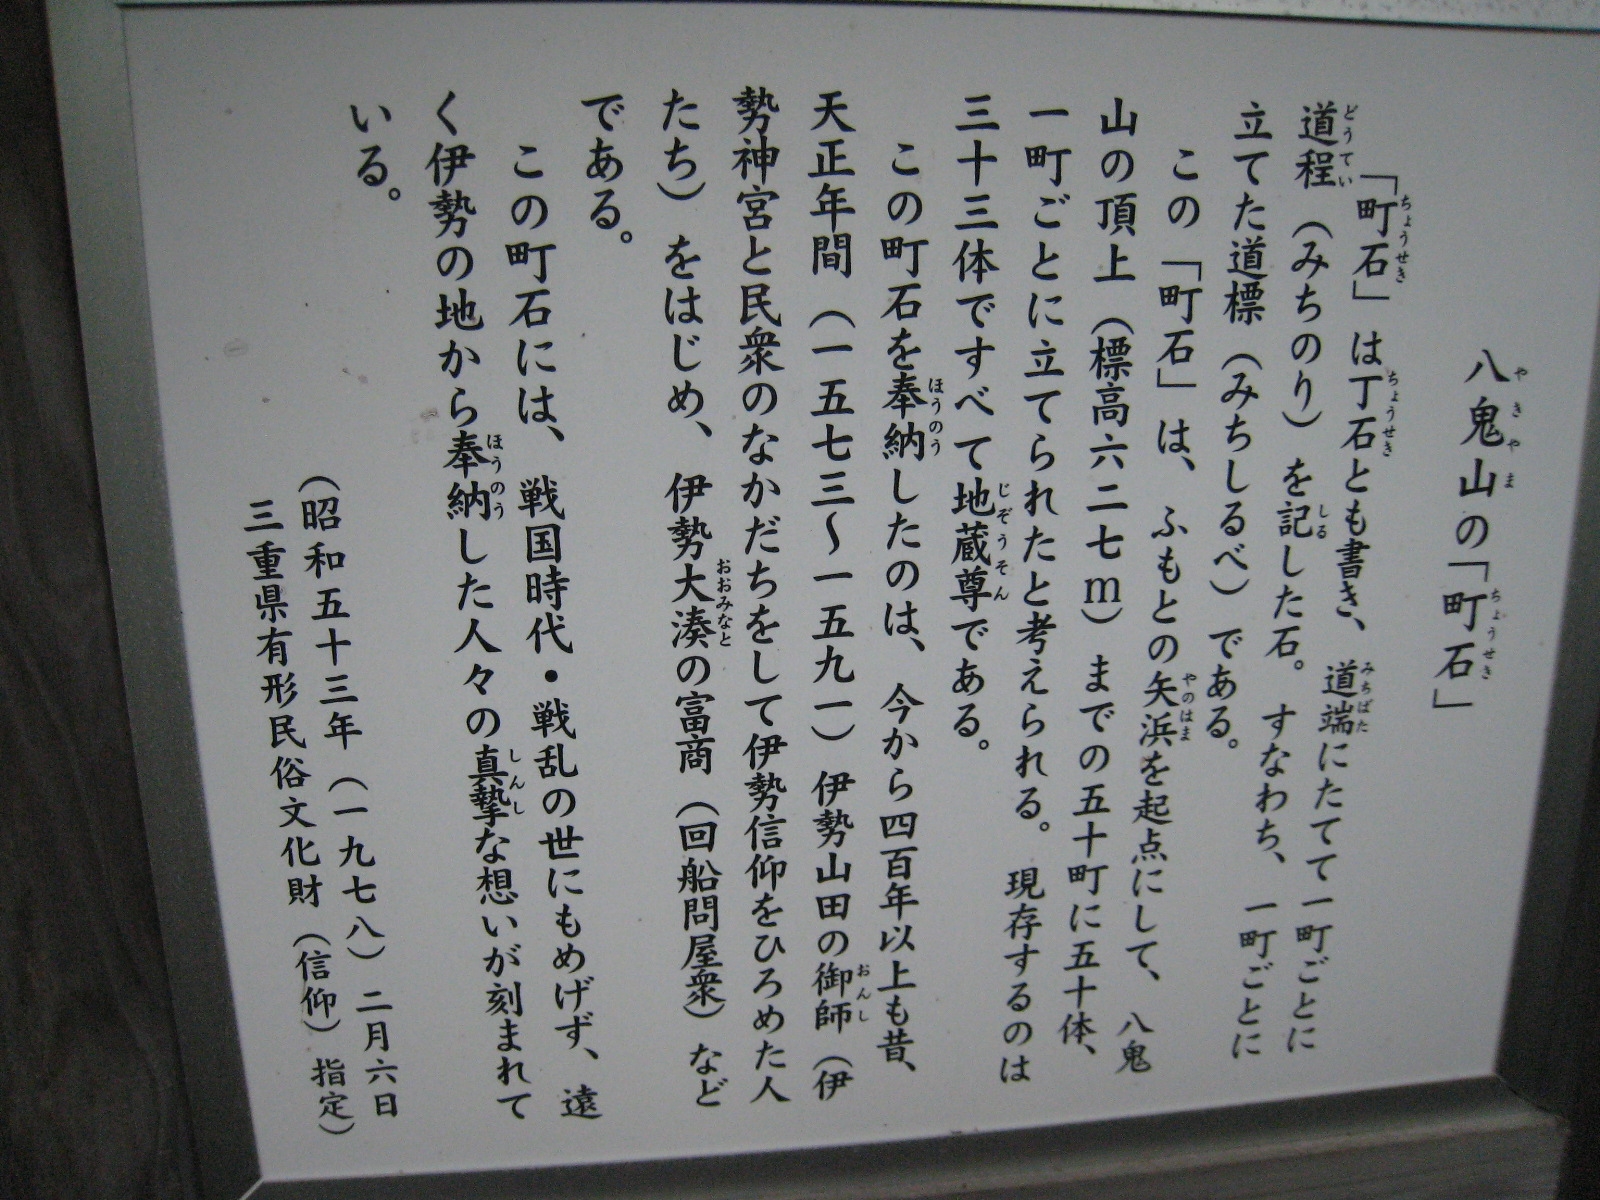 八鬼山の「町石」
「町石」は丁石とも書き、道端にたてて一町ごとに
道程（みちのり）を記した石。すなわち、一町ごとに
立てた道標（みちしるべ）である。
この「町石」は、ふもとの矢浜を起点にして、八鬼
山の頂上（標高六二七ｍ）までの五十町に五十体、
一町ごとに立てられたと考えられる。現存するのは
三十三体ですべて地蔵尊である。
この町石を奉納したのは、今から四百年以上も昔、
天正年間（一五七三〜一五九一）伊勢山田の御師（伊
勢神宮と民衆のなかだちをして伊勢信仰をひろめた人
たち）をはじめ、伊勢大湊の富商（回船問屋衆）など
である。
この町石には、戦国時代・戦乱の世にもめげず、遠
く伊勢の地から奉納した人々の真摯な想いが刻まれて
いる。
（昭和五十三年（一九七八）二月六日
三重県有形民俗文化財（信仰）指定）